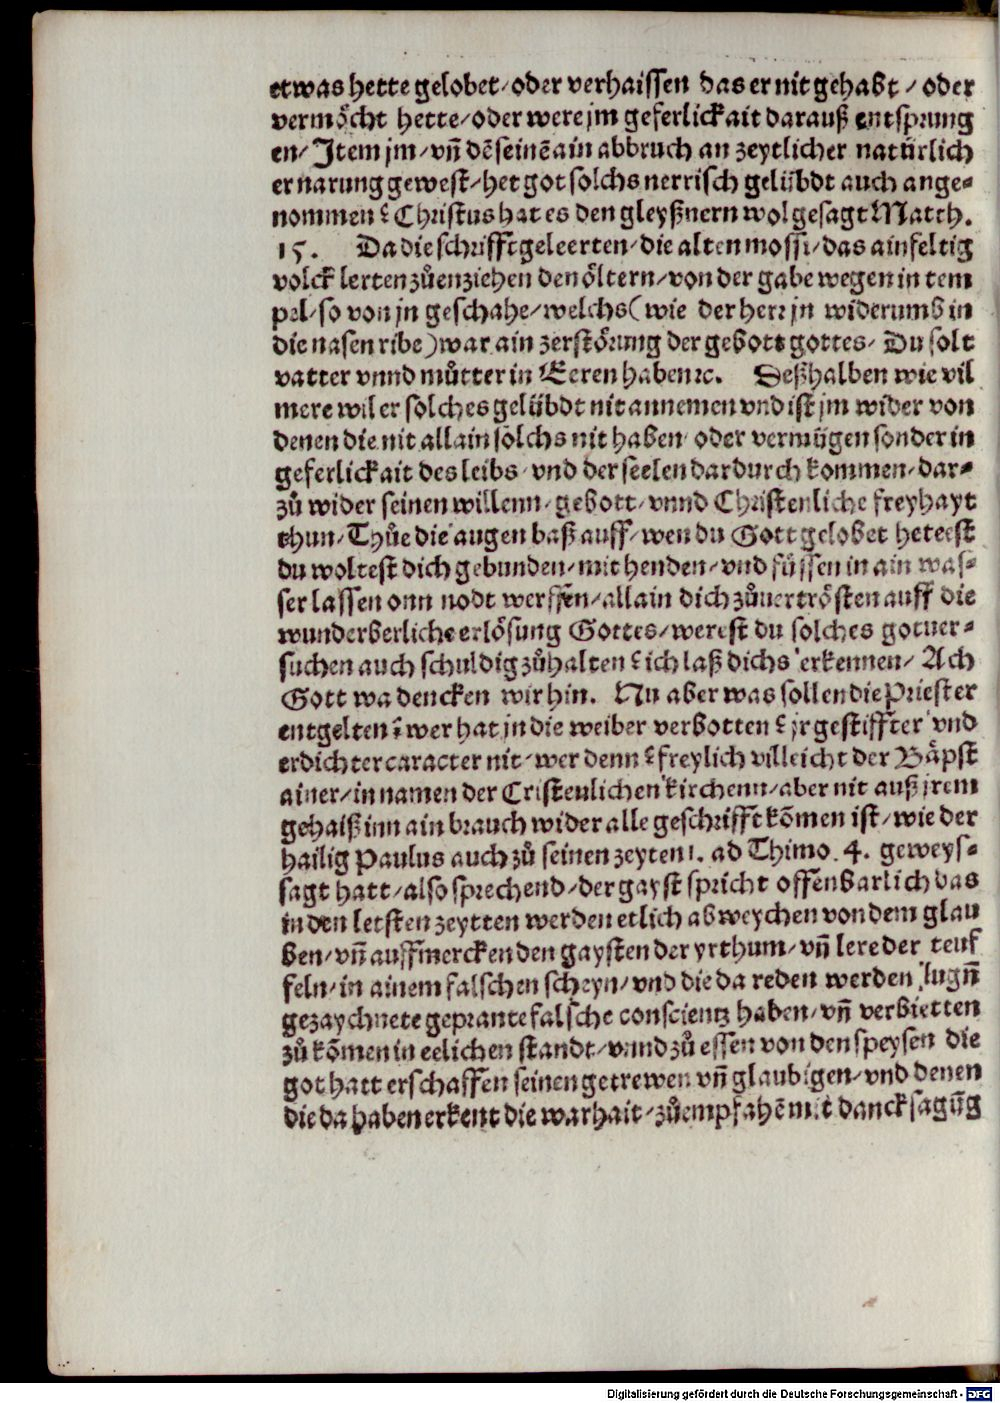 etwas hette gelobet / oder verhaissen das er nit gehabt / oder
vermöcht hette / oder were jm geferlickait darauß entsprung
en / Item jm / vñ dē seinē ain abbruch an zeytlicher natürlich
er narung gewest / het got solchs nerrisch gelübdt auch ange⸗
nommen ? Christus hat es den gleyßnern wol gesagt Matth.
15. Da die schrifftgeleerten / die alten mossi / das ainfeltig
volck lerten zůenziehen den öltern / von der gabe wegen in tem
pel / so von jn geschahe / welchs ( wie der herr jn widerumb in
die nasen ribe ) war ain zerstörung der gebott gottes / Du solt
vatter vnnd můtter in Eeren haben ꝛc. Deßhalben wie vil
mere wil er solches gelübdt nit annemen vnd ist jm wider von
denen die nit allain solchs nit haben / oder vermügen sonder in
geferlickait des leibs / vnd der seelen dardurch kommen / dar⸗
zů wider seinen willenn / gebott / vnnd Christenliche freyhayt
thun / Thůe die augen baß auff / wen du Gott gelobet heteest
du woltest dich gebunden / mit henden / vnd füssen in ain was⸗
ser lassen onn nodt werffen / allain dich zůuertrösten auff die
wunderberliche erlösung Gottes / werest du solches gotuer⸗
suchen auch schuldig zůhalten ? ich laß dichs erkennen / Ach
Gott wa dencken wir hin. Nu aber was sollen die Priester
entgelten ? wer hat jn die weiber verbotten ? jr gestiffter vnd
erdichter caracter nit / wer denn ? freylich villeicht der Bäpst
ainer / in namen der Cristenlichen kirchenn / aber nit auß jrem
gehaiß inn ain brauch wider alle geschrifft kōmen ist / wie der
hailig Paulus auch zů seinen zeyten 1. ad Thimo. 4. geweys⸗
sagt hatt / also sprechend / der gayst spricht offenbarlich das
in den letsten zeytten werden etlich abweychen von dem glau
ben / vñ auffmercken den gaysten der yrthum / vñ lere der teuf
feln / in ainem falschen scheyn / vnd die da reden werden lugñ
gezaychnete geprante falsche conscientz haben / vñ verbietten
zů kōmen in eelichen standt / vnnd zů essen von den speysen die
got hatt erschaffen seinen getrewen vñ glaubigen / vnd denen
die da haben erkent die warhait / zůempfahē mit danck sagūg
Digitalisierung gefördert durch die Deutsche Forschungsgemeinschaft - DFG